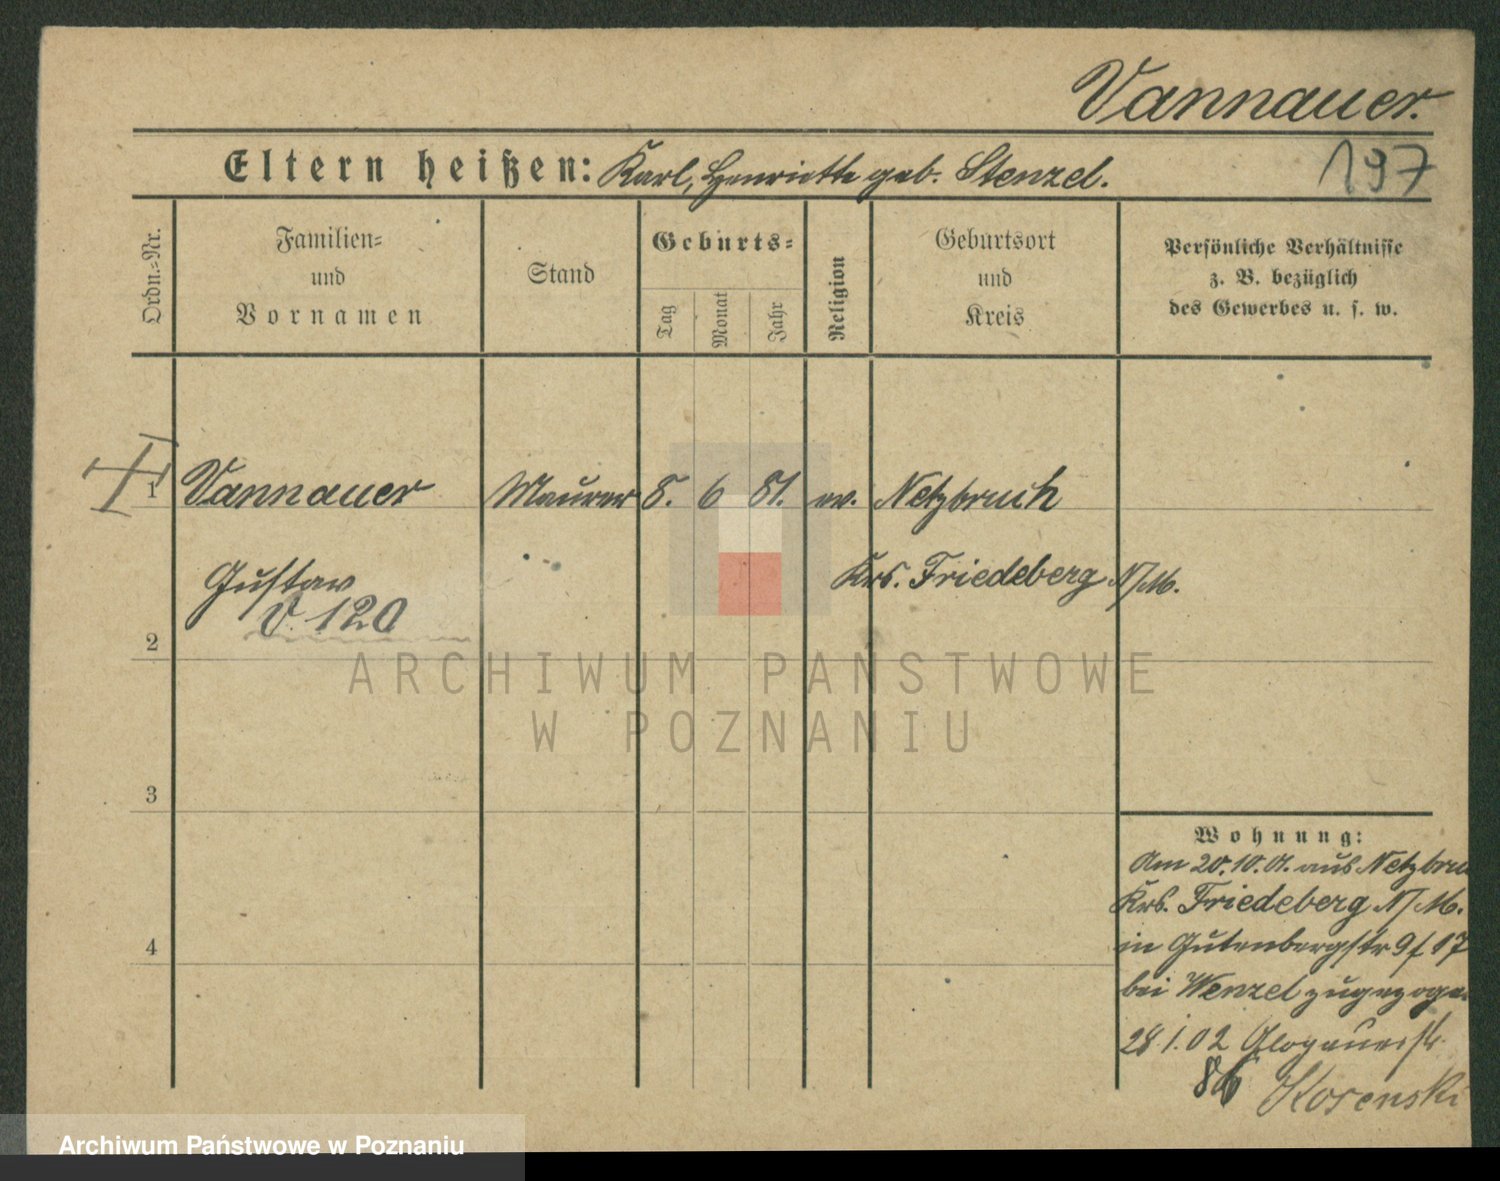 Vannauer.
Eltern heißen: Karl, Henriette geb. Stenzel.
197
Ordn.-Nr.
Familien-
und
Vornamen
Stand
Geburts-
Tag
Monat
Jahr
Religion
Geburtsort
und
Kreis
Persönliche Verhältnisse
z. B. bezüglich
des Gewerbes u. s. w.
1 Vannauer Maurer 8. 6 81. ev. Netzbruch
Gustav Krs. Friedeberg N/M.
V. 120
2
ARCHIWUM PAŃSTWOWE
W POZNANIU
3
4
Wohnung:
Am 20.10.01. aus Netzbru
Krs. Friedeberg N/M.
in Gutenbergstr 9f 17
bei Wenzel zugezogen
28.1.02 Glogauerstr.
86 Korenski
Archiwum Państwowe w Poznaniu